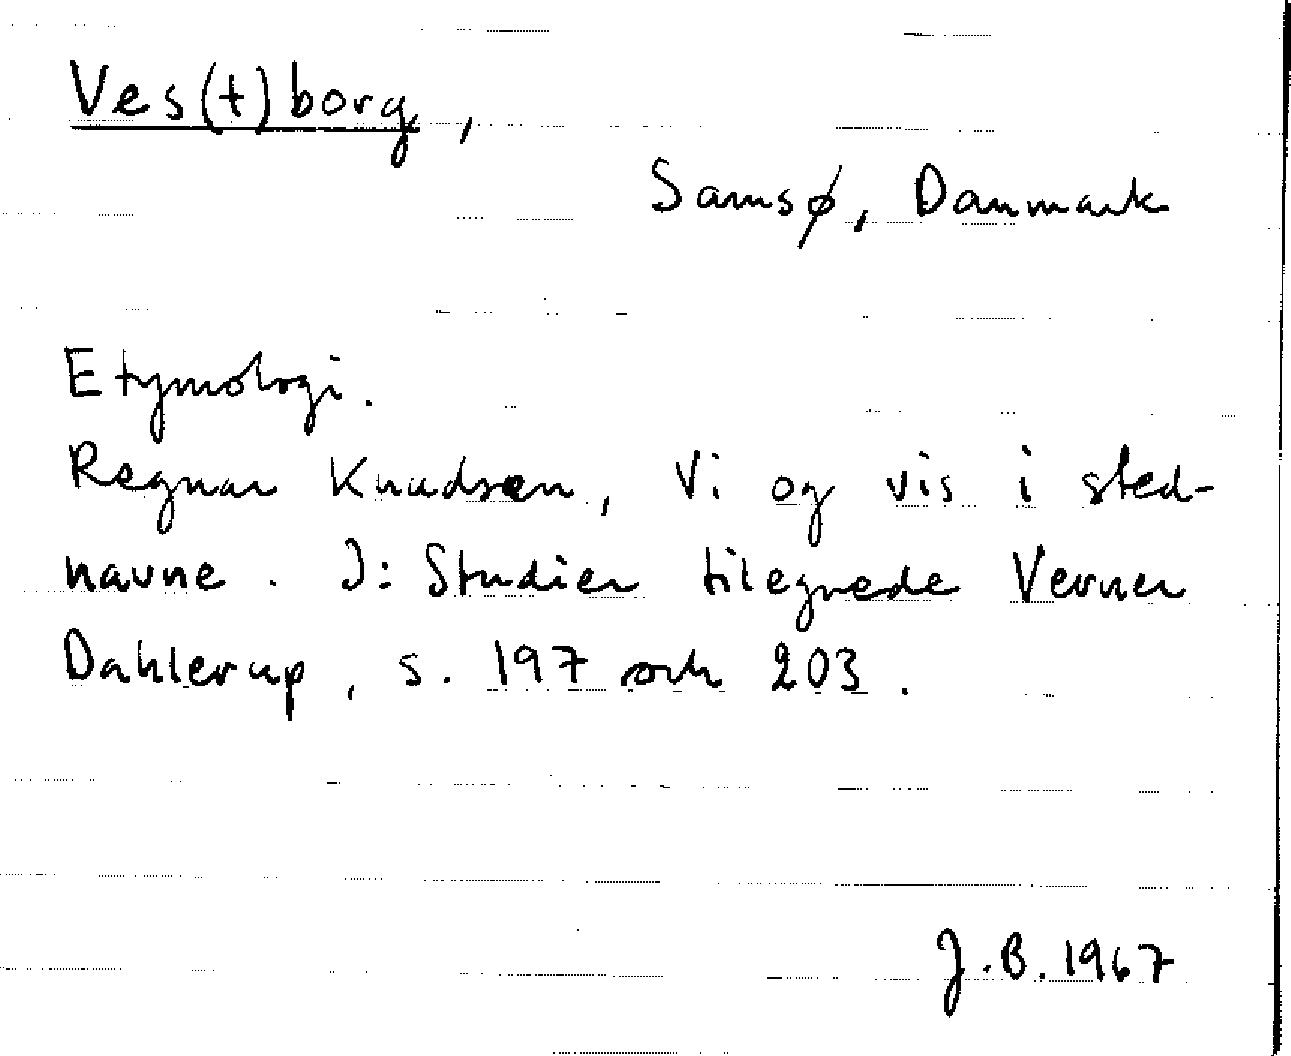 Ves(t)borg,
Samsø, Danmark
Etymologi.
Regnar Knudsen, Vi og vis i sted-
navne. I: Studier tilegnede Verner
Dahlerup, s. 197 och 203.
J.B. 1967